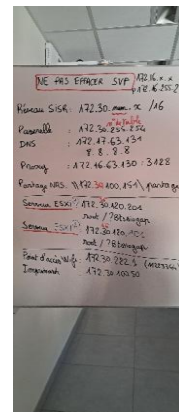 NE PAS EFFACER SVP
172.16.x.x
172.16.255.2
Réseau SISR : 172.30.  .x /16
Passerelle : 172.30.255.254
DNS : 172.17.63.131
8.8.8.8
Proxy : 172.16.63.130 : 3128
Partage NAS : \\172.30.100.151\partage
Serveur ESXi : 172.30.120.201
root /
Serveur ESXi : 172.30.120.
root /
Point d'accès Wifi : 172.30.222.1
Imprimante 172.30.100.50